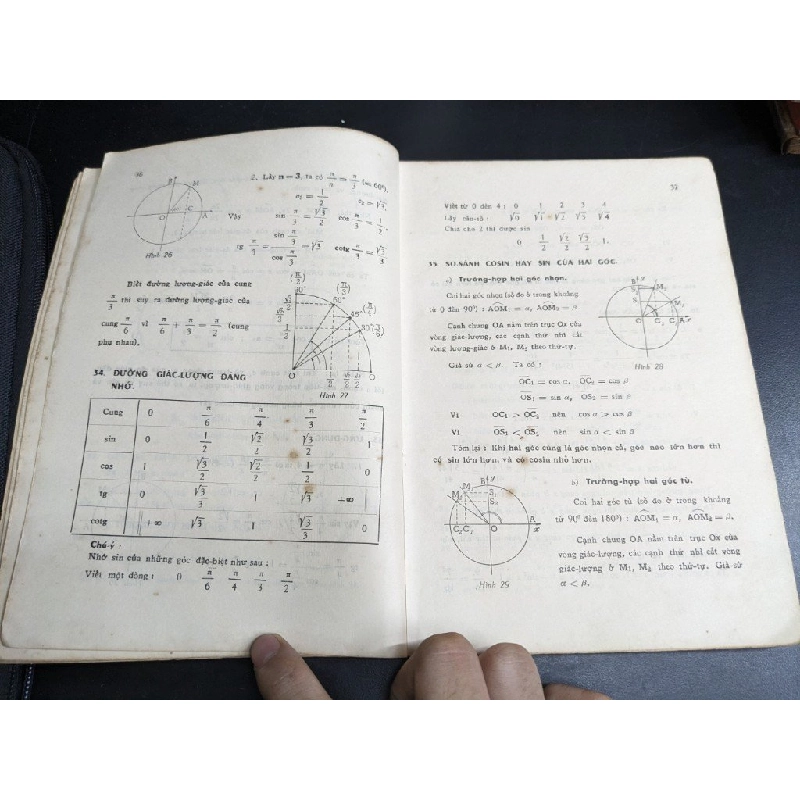 2. Lấy n = 3, ta có π/n = π/3 (= 60°),
Vậy sin π/3 = √3/2 cos π/3 = 1/2
tg π/3 = sin π/3 / cos π/3 = √3 cotg π/3 = √3/3
Hình 26
Biết đường lượng-giác của cung
π/3 thì suy ra đường lượng-giác của
cung π/6 vì π/6 + π/3 = π/2 (cung
phụ nhau).
Hình 27
34. ĐƯỜNG GIÁC-LƯỢNG ĐÁNG
NHỚ.
Cung 0 π/6 π/4 π/3 π/2
sin 0 1/2 √2/2 √3/2 1
cos 1 √3/2 √2/2 1/2 0
tg 0 √3/3 1 √3 +∞
cotg +∞ √3 1 √3/3 0
Chú-ý :
Nhớ sin của những góc đặc-biệt như sau :
Viết một dòng : 0 π/6 π/4 π/3 π/2
Viết từ 0 đến 4 : 0 1 2 3 4
Lấy căn-số : √0 √1 √2 √3 √4
Chia cho 2 thì được sin
0 1/2 √2/2 √3/2 1.
35 SO-SÁNH COSIN HAY SIN CỦA HAI GÓC.
a) Trường-hợp hai góc nhọn.
Coi hai góc nhọn (số đo ở trong khoảng
từ 0 đến 90°) : AOM₁ = α, AOM₂ = β
Cạnh chung OA nằm trên trục Ox của
vòng giác-lượng, các cạnh thứ nhì cắt
vòng lượng-giác ở M₁, M₂ theo thứ-tự.
Giả sử α < β. Ta có :
Hình 28
OC₁ = cos α, OC₂ = cos β
OS₁ = sin α, OS₂ = sin β
Vì OC₁ > OC₂ nên cos α > cos β
Vì OS₁ < OS₂ nên sin α < sin β
Tóm lại : Khi hai góc cùng là góc nhọn cả, góc nào lớn hơn thì
có sin lớn hơn, và có cosin nhỏ hơn.
b) Trường-hợp hai góc tù.
Coi hai góc tù (số đo ở trong khoảng
từ 90° đến 180°) : AOM₁ = α, AOM₂ = β.
Cạnh chung OA nằm trên trục Ox của
vòng giác-lượng, các cạnh thứ nhì cắt vòng
giác-lượng ở M₁, M₂ theo thứ-tự. Giả sử
α < β.
Hình 29